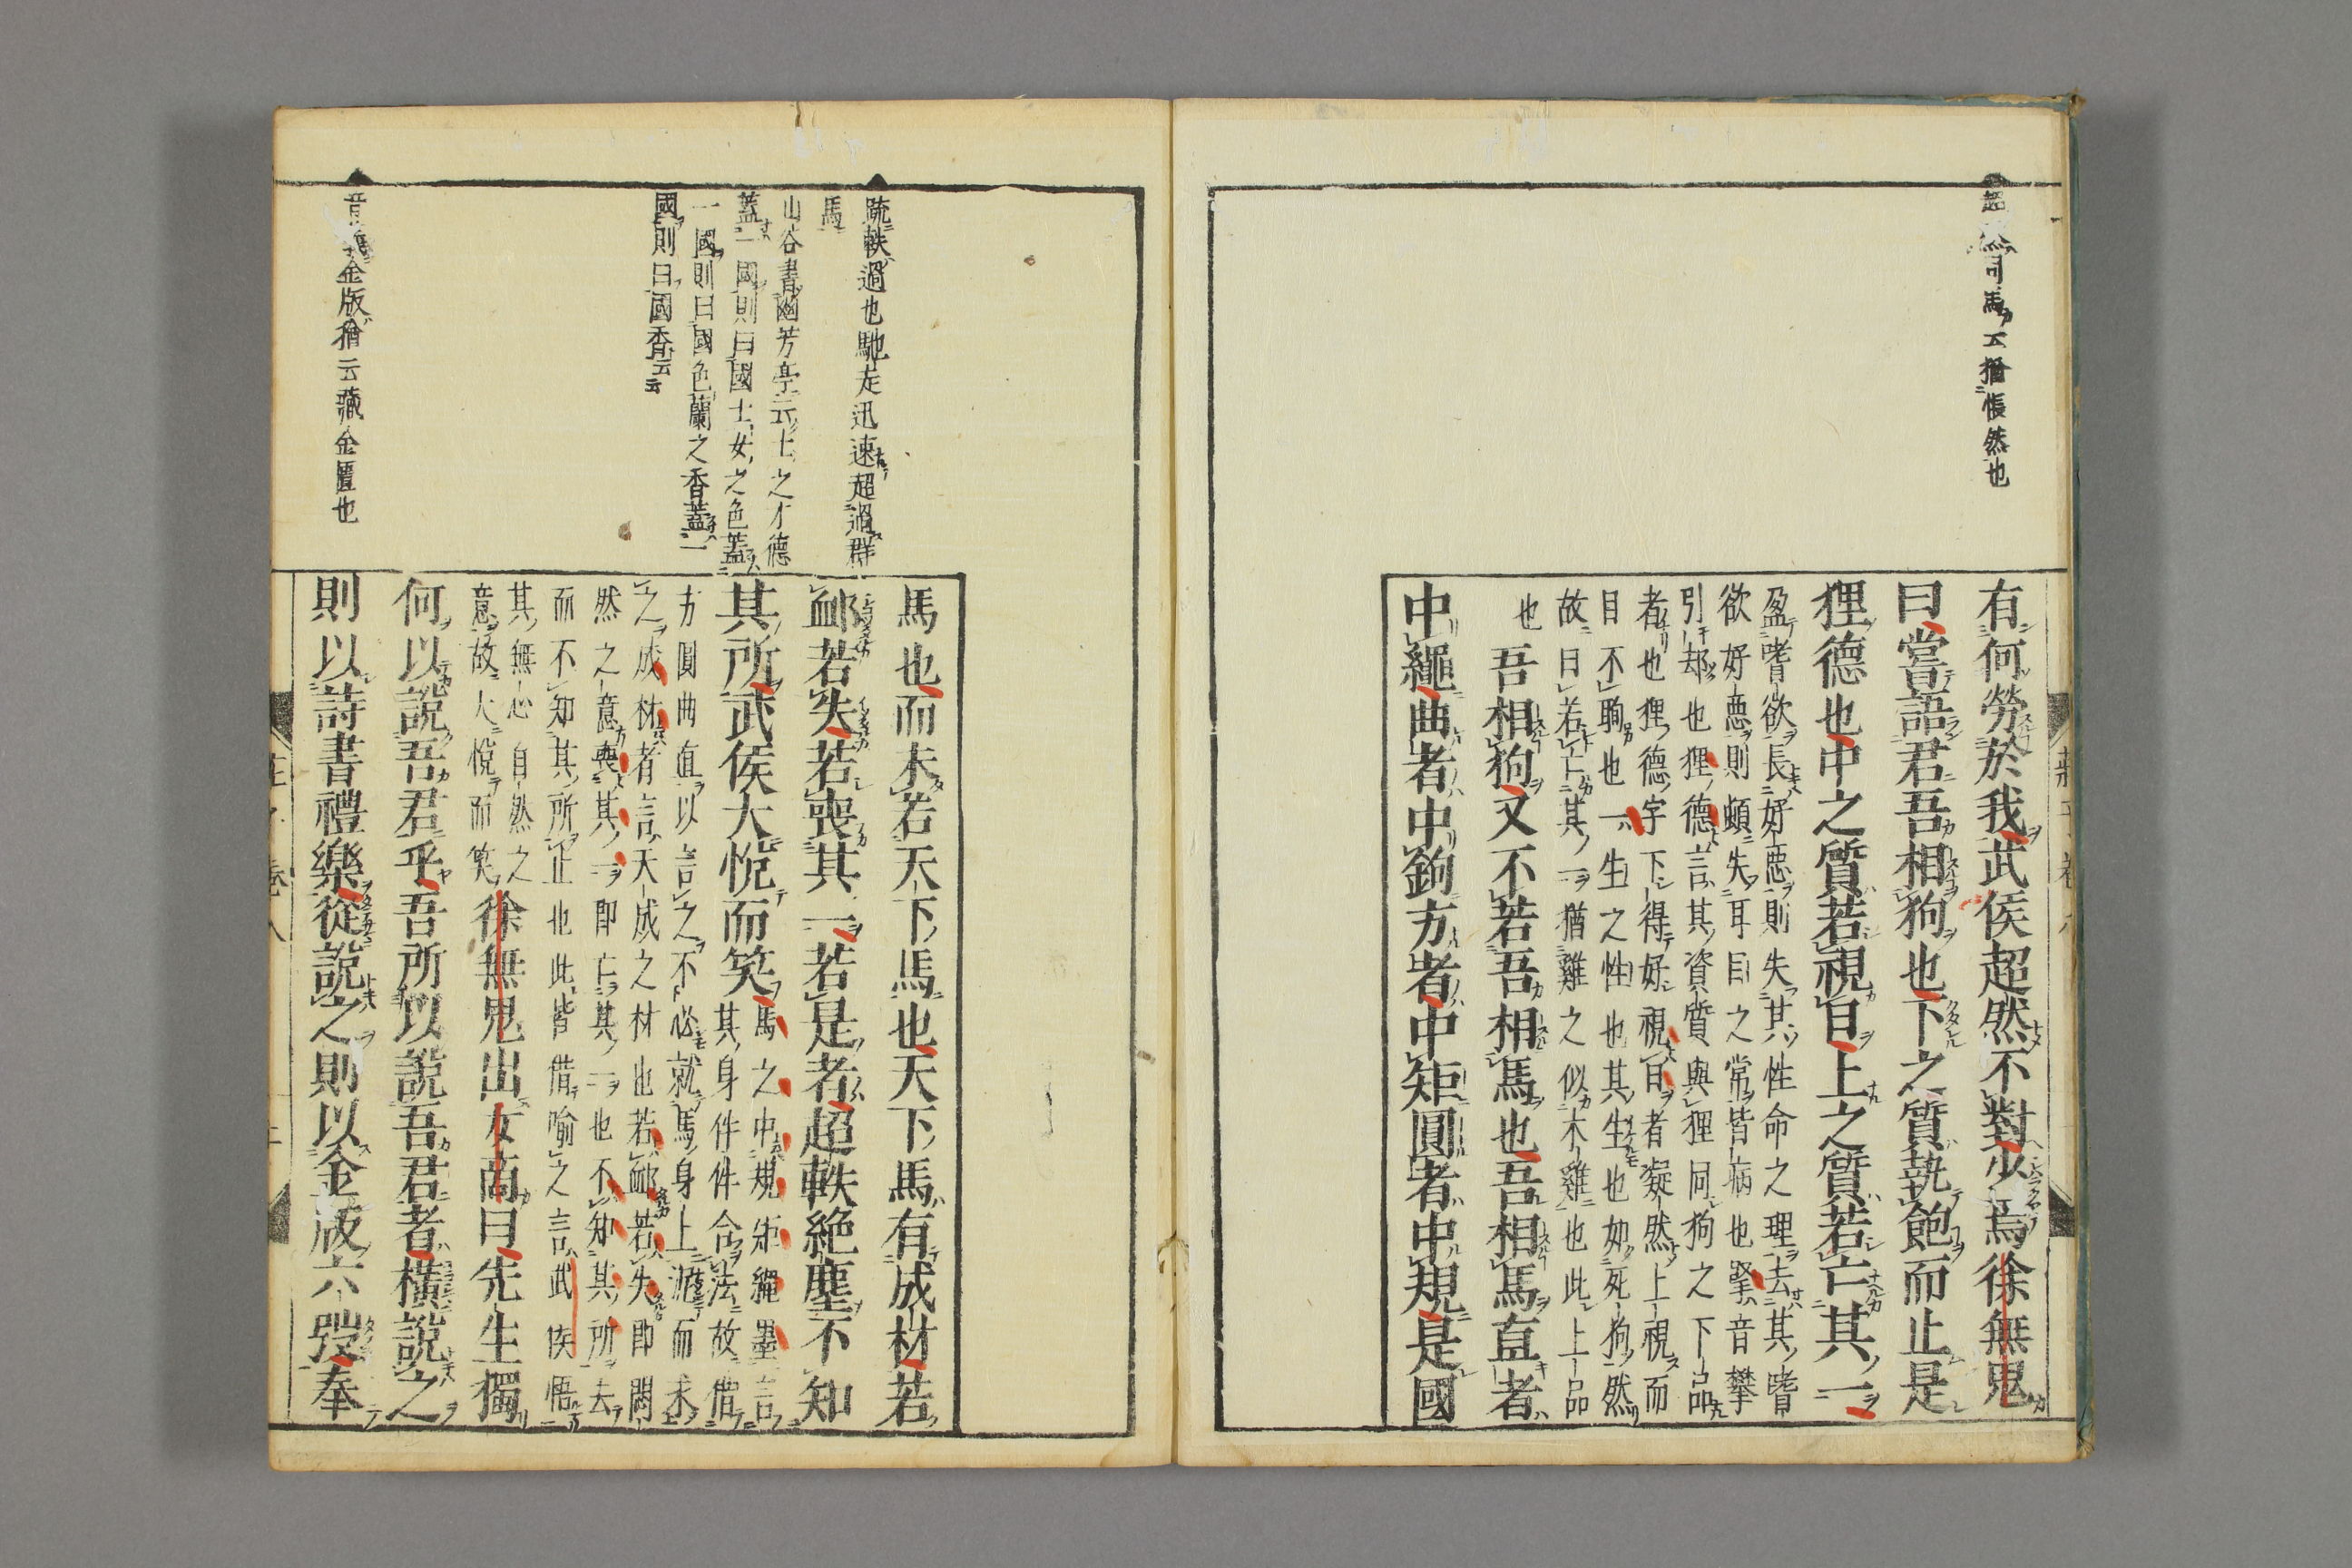 超然司馬云猶悵然也
有何勞於我武侯超然不對少焉徐無鬼
曰嘗語君吾相狗也下之質執飽而止是
狸德也中之質若視日上之質若亡其一
盈嗜欲長好惡則失其性命之理去其嗜
欲好惡則頗失耳目之常皆病也掔音攀
引却也狸德言其資質與狸同狗之下品
者也狸德字下得好視日者凝然上視而
目不眴也一生之性也其生也如死狗然
故曰若亡其一猶雞之似木雞也此上品
也
吾相狗又不若吾相馬也吾相馬直者
中繩曲者中鉤方者中矩圓者中規是國
疏軼過也馳走迅速超過群
馬
山谷書幽芳亭云士之才德
蓋一國則曰國士女之色蓋
一國則曰國色蘭之香蓋一
國則曰國香云云
音義金版猶云藏金匱也
馬也而未若天下馬也天下馬有成材若
䘏若失若喪其一若是者超軼絶塵不知
其所武侯大悅而笑
馬之中規矩繩墨言
其身件件合法故借
方圓曲直以言之不必就馬身上泥而求
之成材者言天成之材也若䘏若失即悶
然之意喪其一即亡其一也不知其所去
而不知其所止也此皆借喻之言武侯悟
其無心自然之
意故大悅而笑
徐無鬼出女商曰先生獨
何以說吾君乎吾所以說吾君者橫說之
則以詩書禮樂從說之則以金版六弢奉